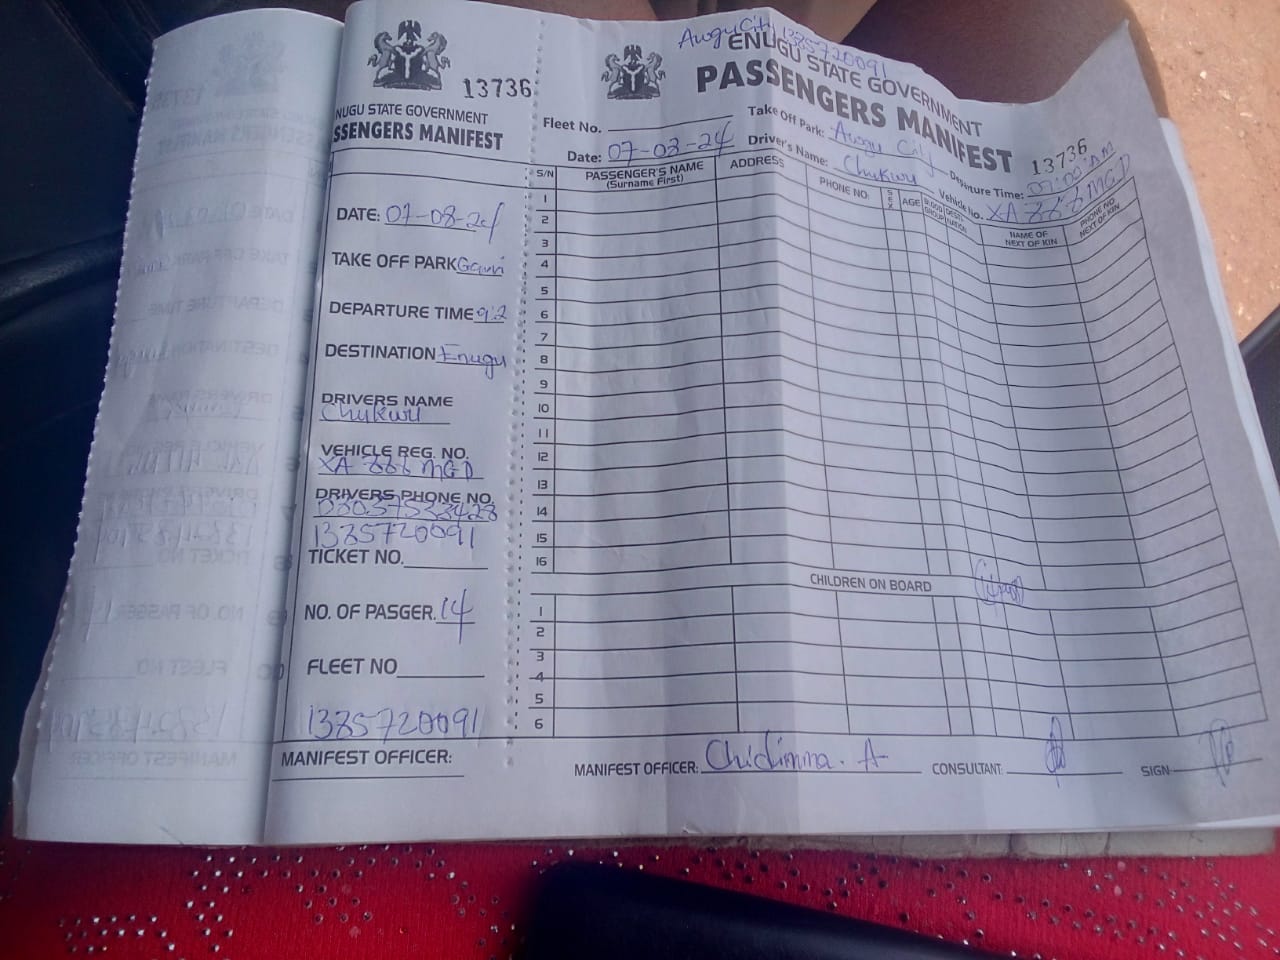 13736
NUGU STATE GOVERNMENT
SSENGERS MANIFEST
DATE: 07-08-24
TAKE OFF PARK
DEPARTURE TIME 9:2
DESTINATION Enugu
DRIVERS NAME
Chukwu
VEHICLE REG. NO.
XA 888 MGD
DRIVERS PHONE NO.
1385720091
TICKET NO.
NO. OF PASGER. 14
FLEET NO
1385720091
MANIFEST OFFICER:
Awgu City 1385720091
ENUGU STATE GOVERNMENT
PASSENGERS MANIFEST
13736
Fleet No.
Take Off Park: Awgu City
Departure Time: 07:00 AM
Date: 07-08-24
Driver's Name: Chukwu
Vehicle No. XA 888 MGD
S/N PASSENGER'S NAME (Surname First) ADDRESS PHONE NO. SEX AGE BLOOD GROUP DESTINATION NAME OF NEXT OF KIN PHONE NO. NEXT OF KIN
1
2
3
4
5
6
7
8
9
10
11
12
13
14
15
16
CHILDREN ON BOARD
1
2
3
4
5
6
MANIFEST OFFICER: Chidimma. A CONSULTANT: SIGN